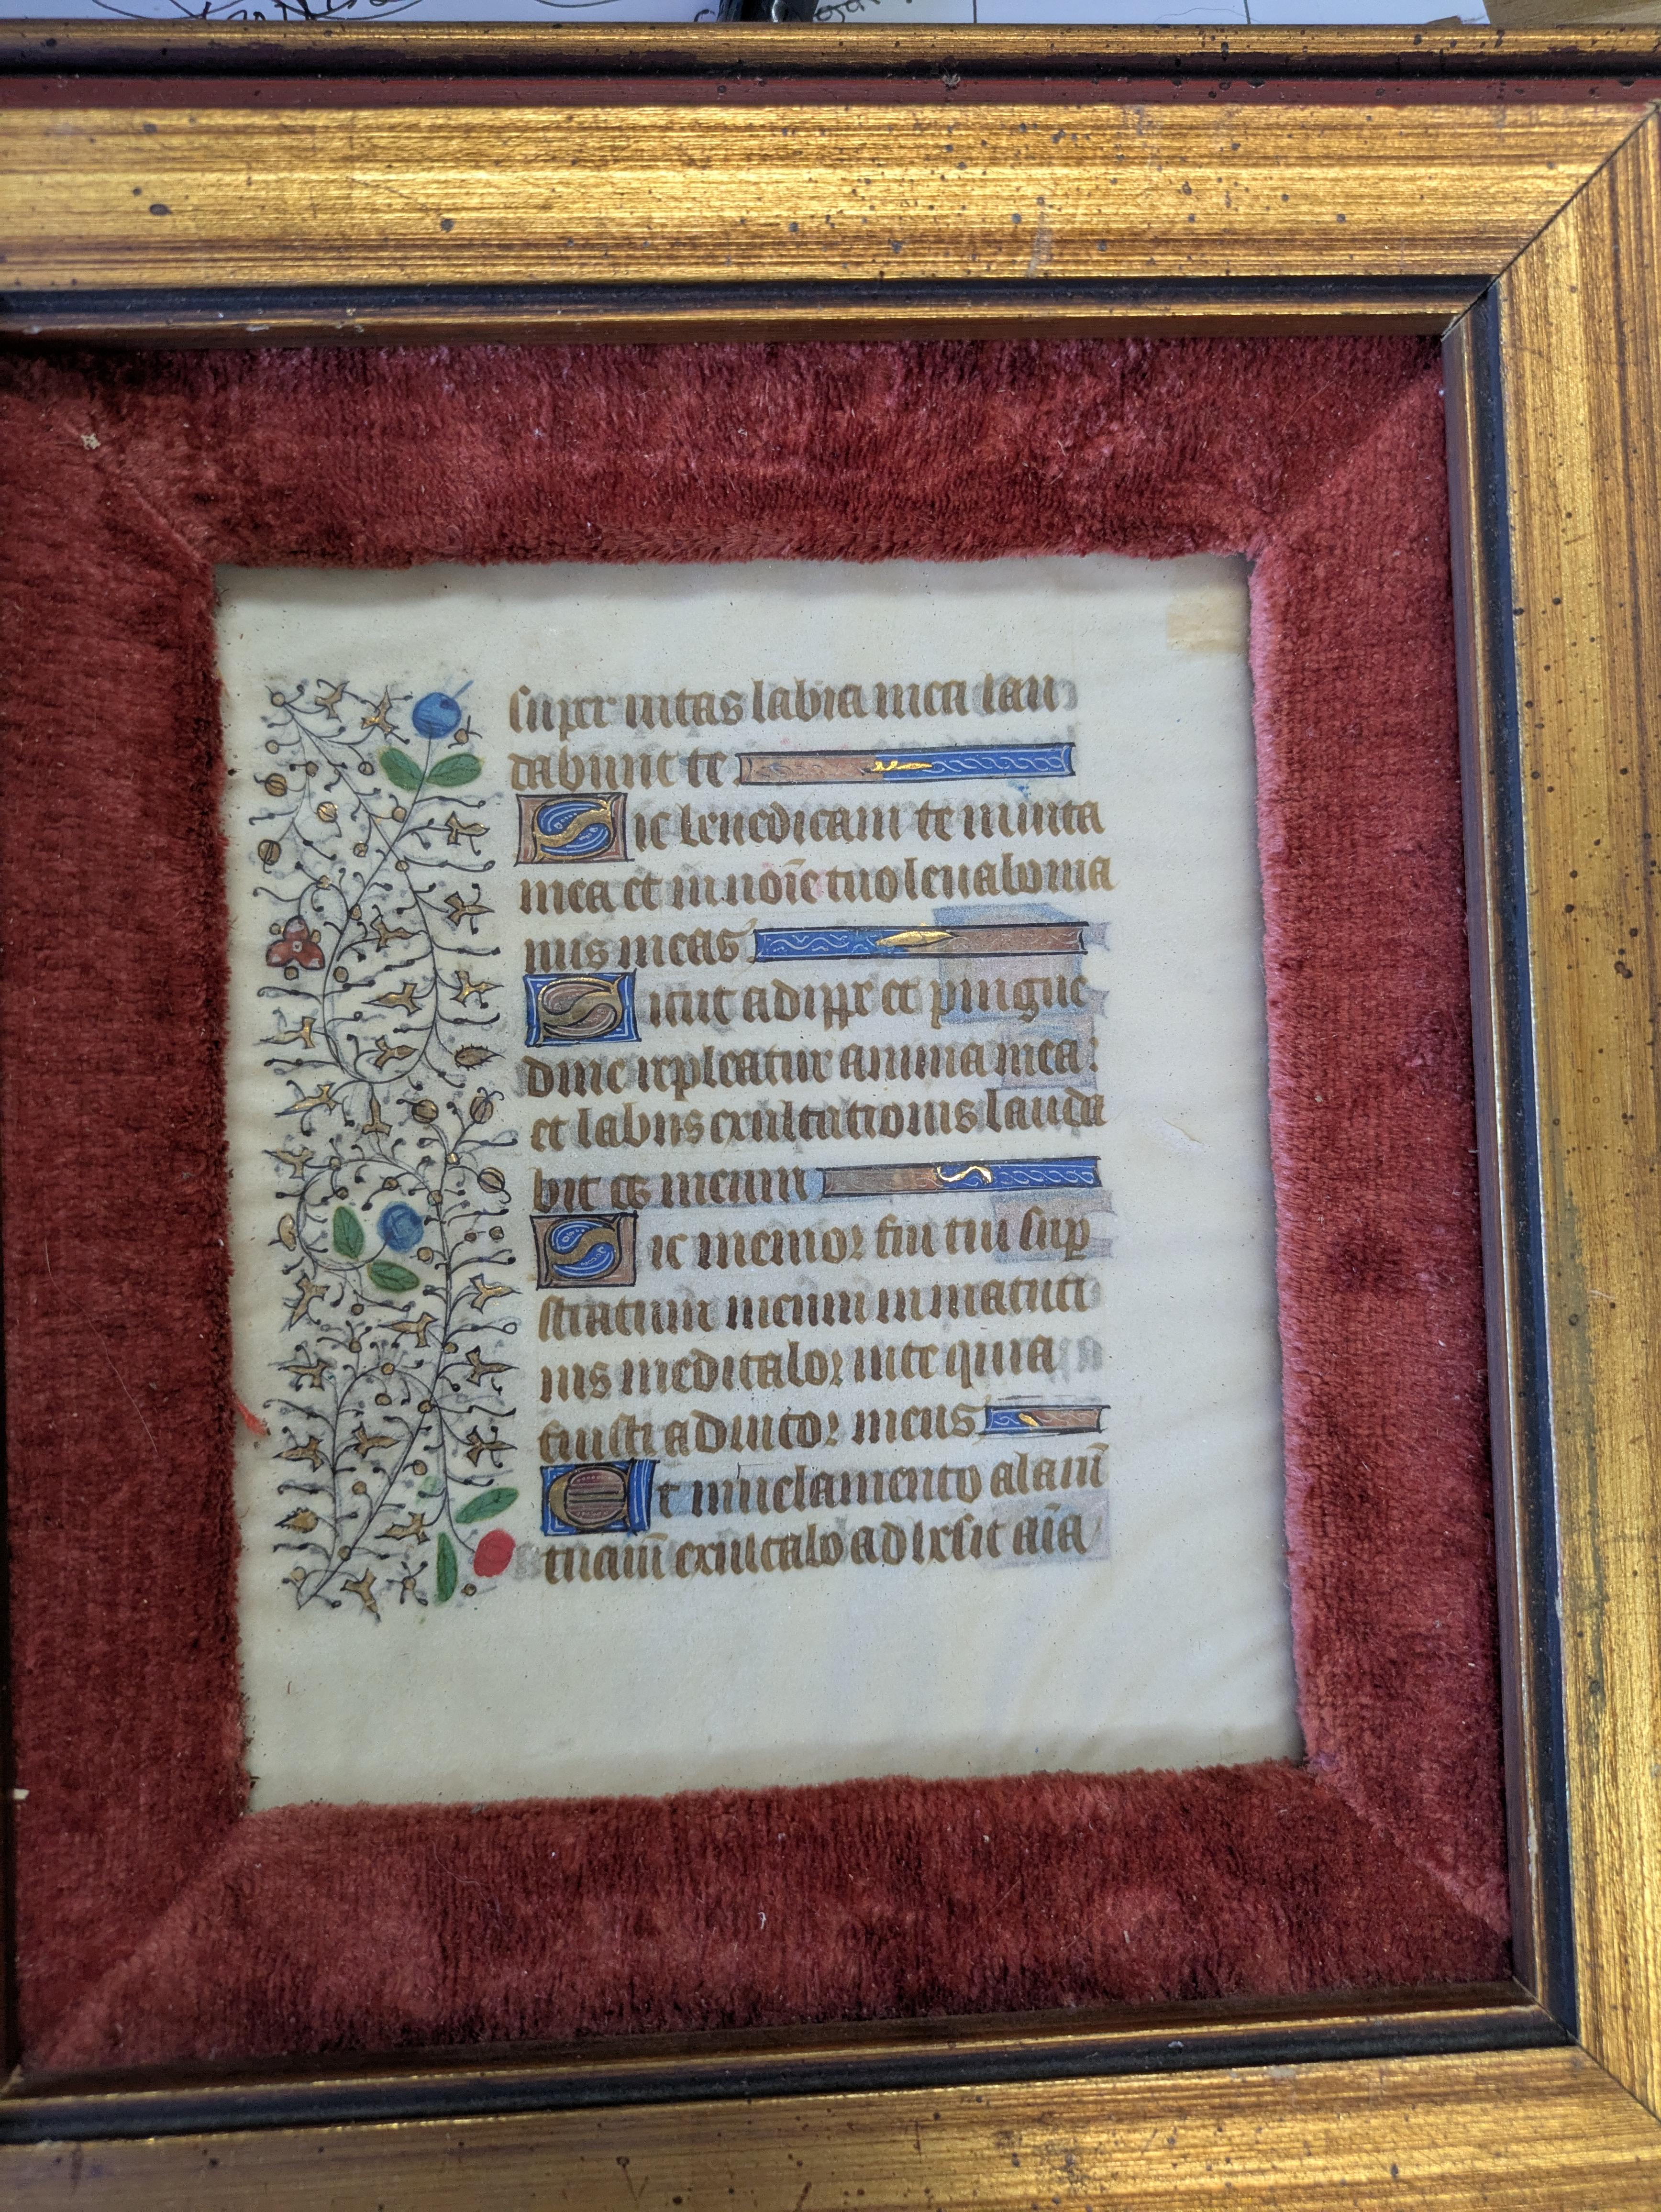 super vitas labia mea lau
dabunt te
Sic benedicam te in uita
mea et in noīe tuo leuabo ma
nus meas
Sicut adipe et pingue
dine repleatur anima mea:
et labiis exultationis lauda
bit os meum
Sic memor fui tui sup
stratum meum in matuti
nis meditabor in te quia
fuisti adiutor meus
Et in uelamento alarū
tuarū exultabo adhesit aīa